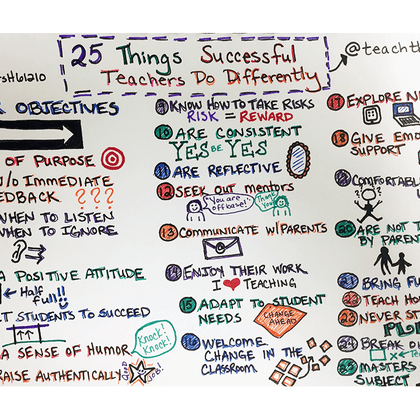 25 Things Successful
Teachers Do Differently
@teachth
OBJECTIVES
OF PURPOSE
Immediate
? ? ?
WHEN TO LISTEN
WHEN TO IGNORE
A POSITIVE ATTITUDE
Half
full!!
STUDENTS TO SUCCEED
A SENSE OF HUMOR
Knock!
Knock!
AUTHENTICALLY
9 KNOW HOW TO TAKE RISKS
RISK = REWARD
10 ARE CONSISTENT
YES BE YES
11 ARE REFLECTIVE
12 SEEK OUT MENTORS
"You are
off base!"
Thank
You!
13 COMMUNICATE W/PARENTS
14 ENJOY THEIR WORK
I ♥ TEACHING
15 ADAPT TO STUDENT
NEEDS
CHANGE
AHEAD
16 WELCOME
CHANGE IN THE
CLASSROOM
17 EXPLORE
18 GIVE
SUPPORT
COMFORTABLE
20 ARE NOT
BY PARENT
BRING FU
TEACH
NEVER ST
BREAK
MASTERS
SUBJECT